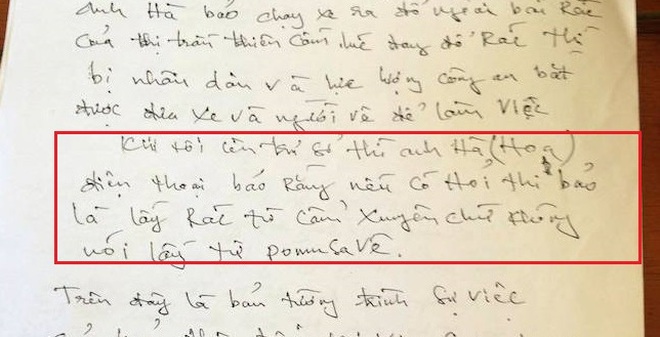 anh Hà bảo chạy xe ra đổ ngoài bãi Rác
Của thị trấn thiên Cầm, lúc đang đổ Rác thì
bị nhân dân và lực lượng công an bắt
được đưa xe và người về để làm việc
Khi tôi lên trụ sở thì anh Hà (Hoa)
điện thoại bảo Rằng nếu có Hỏi thì bảo
là lấy Rác từ Cẩm Xuyên chứ không
nói lấy từ pomusa về.
Trên đây là bản tường trình sự việc